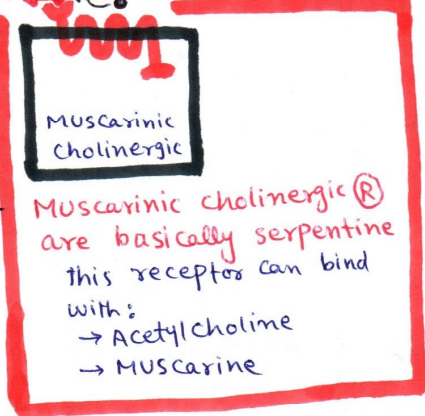 Muscarinic
Cholinergic
Muscarinic cholinergic Ⓡ
are basically serpentine
this receptor can bind
with:
→ Acetylcholine
→ Muscarine